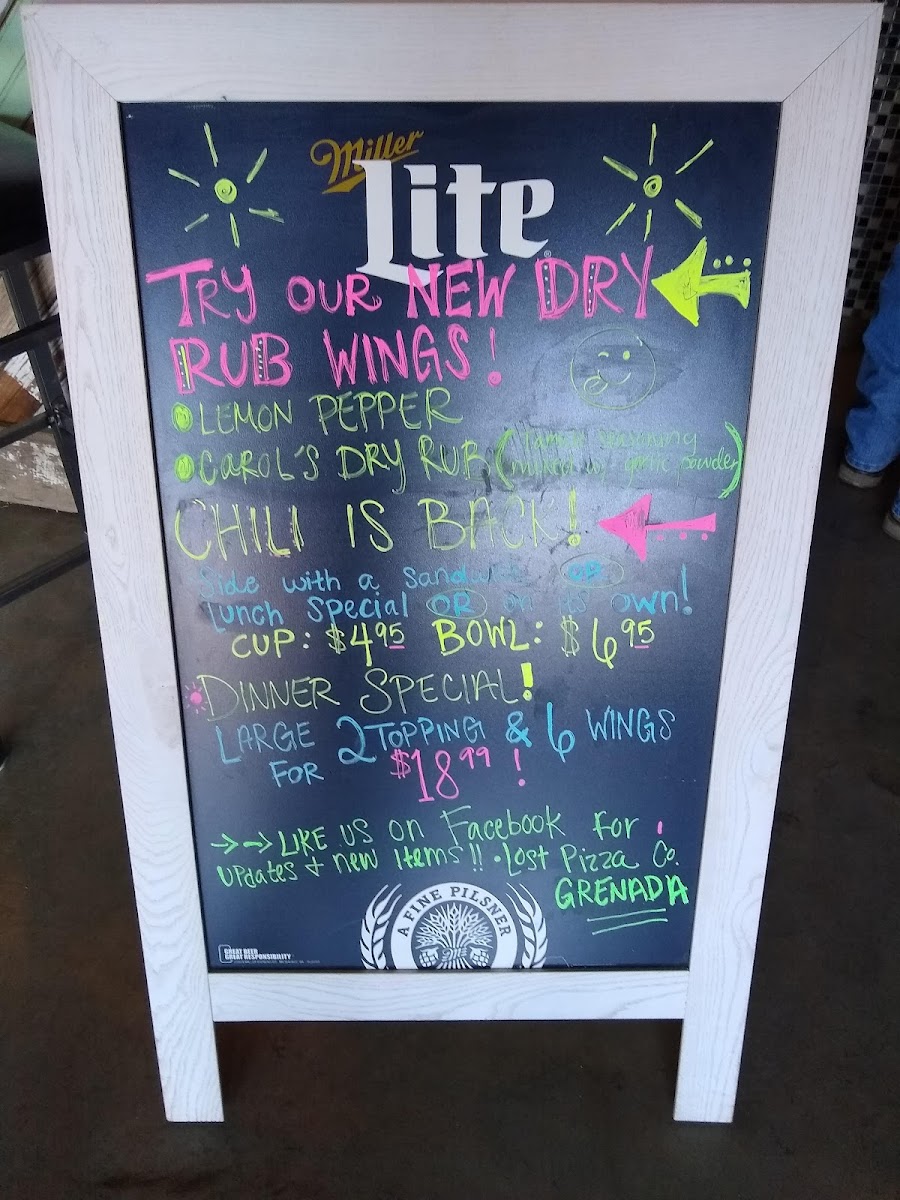 Miller
Lite
TRY OUR NEW DRY
RUB WINGS!
LEMON PEPPER
CAROL'S DRY RUB (
mixed w/ garlic powder)
CHILI IS BACK!
Side with a sandwich OR
Lunch Special OR on its own!
CUP: $4.95 BOWL: $6.95
DINNER SPECIAL!
LARGE 2 TOPPING & 6 WINGS
FOR $18.99!
→→ LIKE US on Facebook for
updates + new items!! • Lost Pizza Co.
GRENADA
A FINE PILSNER
GREAT BEER
GREAT RESPONSIBILITY